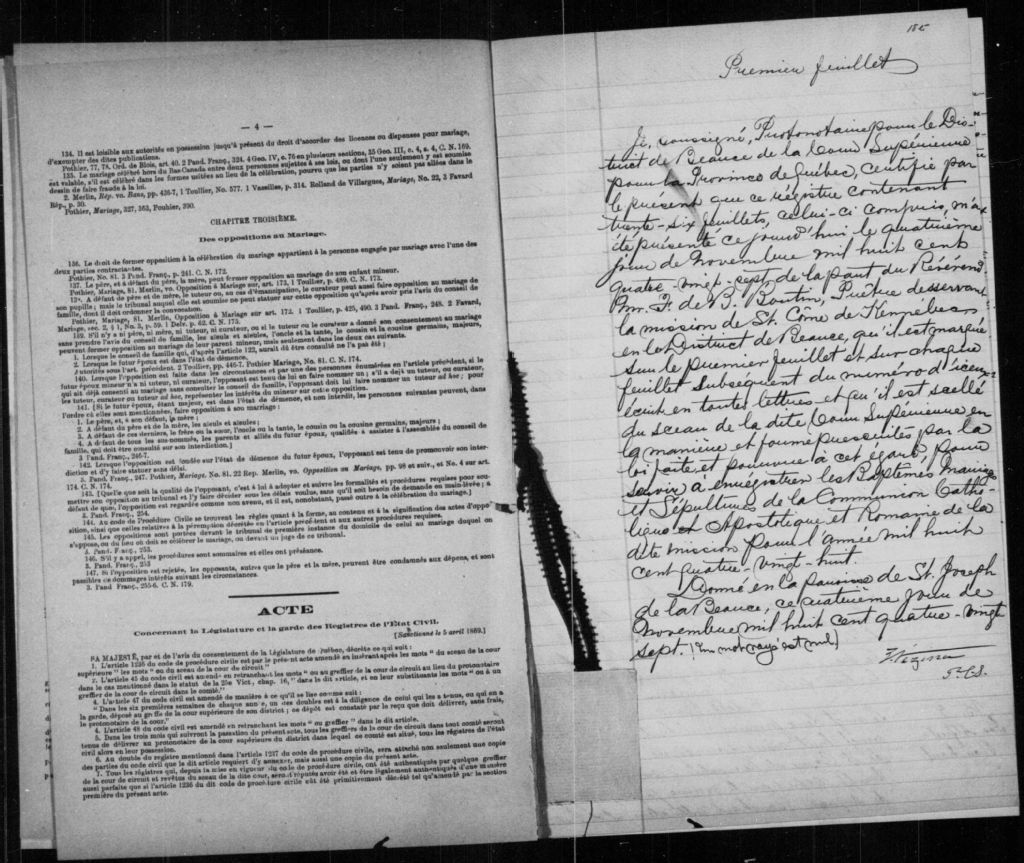 — 4 —
134. Il est loisible aux autorités en possession jusqu'à présent du droit d'accorder des licences ou dispenses pour mariage,
d'exempter des dites publications.
Pothier, 77, 78, Ord. de Blois, art. 40. 2 Pand. Franç., 324. 4 Geo. IV, c. 76 en plusieurs sections, 35 Geo. III, c. 4, s. 4, C. N. 169.
135. Le mariage célébré hors du Bas-Canada entre deux personnes sujettes à ses lois, ou dont l'une seulement y est soumise
est valable, s'il est célébré dans les formes usitées au lieu de la célébration, pourvu que les parties n'y soient pas allées dans le
dessin de faire fraude à la loi.
2. Merlin, Rép. vo. Bans, pp. 436-7, 1 Toullier, No. 577. 1 Vassilles, p. 314. Rolland de Villargues, Mariage, No. 22, 3 Favard
Rép., p. 30.
Pothier, Mariage, 327, 363, Pouhier, 390.
CHAPITRE TROISIÈME.
Des oppositions au Mariage.
136. Le droit de former opposition à la célébration du mariage appartient à la personne engagée par mariage avec l'une des
deux parties contractantes.
Pothier, No. 81. 3 Pand. Franç., p. 241. C. N. 172.
137. Le père, et à défaut du père, la mère, peut former opposition au mariage de son enfant mineur.
Pothier, Mariage, 81. Merlin, vo. Opposition à Mariage sur, art. 173, 1 Toullier, p. 489. C. N. 173.
138. A défaut de père et de mère, le tuteur ou, en cas d'émancipation, le curateur peut aussi faire opposition au mariage de
son pupille; mais le tribunal auquel elle est soumise ne peut statuer sur cette opposition qu'après avoir pris l'avis du conseil de
famille, dont il doit ordonner la convocation.
Pothier, Mariage, 81. Merlin, Opposition à Mariage sur art. 172. 1 Toullier, p. 425, 490. 3 Pand. Franç., 248. 2 Favard,
Mariage, sec. 2, § 1, No. 3, p. 59. 1 Delv. p. 62. C. N. 175.
139. S'il n'y a ni père, ni mère, ni tuteur, ni curateur, ou si le tuteur ou le curateur a donné son consentement au mariage
sans prendre l'avis du conseil de famille, les aïeuls et aïeules, l'oncle et la tante, le cousin et la cousine germains, majeurs,
peuvent former opposition au mariage de leur parent mineur, mais seulement dans les deux cas suivants.
1. Lorsque le conseil de famille qui, d'après l'article 122, aurait dû être consulté ne l'a pas été;
2. Lorsque le futur époux est dans l'état de démence.
Autorités sous l'art. précédent. 2 Toullier, pp. 446-7. Pothier Mariage, No. 81. C. N. 174.
140. Lorsque l'opposition est faite dans les circonstances et par une des personnes énumérées en l'article précédent, si le
futur époux mineur n'a ni tuteur, ni curateur, l'opposant est tenu de lui en faire nommer un; s'il a déjà un tuteur, ou curateur,
qui ait déjà consenti au mariage sans consulter le conseil de famille, l'opposant doit lui faire nommer un tuteur ad hoc; pour
les tuteur, curateur ou tuteur ad hoc, représenter les intérêts du mineur sur cette opposition.
141. [Si le futur époux, étant majeur, est dans l'état de démence, et non interdit, les personnes suivantes peuvent, dans
l'ordre où elles sont mentionnées, faire opposition à son mariage:
1. Le père, et, à son défaut, la mère;
2. A défaut du père et de la mère, les aïeuls et aïeules;
3. A défaut de ces derniers, le frère ou la sœur, l'oncle ou la tante, le cousin ou la cousine germains, majeurs;
4. A défaut de tous les sus-nommés, les parents et alliés du futur époux, qualifiés à assister à l'assemblée du conseil de
famille, qui doit être consulté sur son interdiction.]
3 Pand. Franç., 246-7.
142. Lorsque l'opposition est fondée sur l'état de démence du futur époux, l'opposant est tenu de promouvoir son inter-
diction et d'y faire statuer sans délai.
3. Pand. Franç., 247. Pothier, Mariage, No. 81. 22 Rep. Merlin, vo. Opposition au Mariage, pp. 98 et suiv., et No. 4 sur art.
174. C. N. 174.
143. [Quelle que soit la qualité de l'opposant, c'est à lui à adopter et suivre les formalités et procédures requises pour sou-
mettre son opposition au tribunal et l'y faire décider sous les délais voulus, sans qu'il soit besoin de demande en main-levée; à
défaut de quoi, l'opposition est regardée comme non avenu, et il est, nonobstant, passé outre à la célébration du mariage.]
3. Pand. Franç., 254.
144. Au code de Procédure Civile se trouvent les règles quant à la forme, au contenu et à la signification des actes d'oppo-
sition, ainsi que celles relatives à la péremption décrétée en l'article précédent et aux autres procédures requises.
145. Les oppositions sont portées devant le tribunal de première instance du domicile de celui au mariage duquel on
s'oppose, ou du lieu où doit se célébrer le mariage, ou devant un juge de ce tribunal.
3. Pand. Franç., 253.
146. S'il y a appel, les procédures sont sommaires et elles ont préséance.
3. Pand. Franç., 253
147. Si l'opposition est rejetée, les opposants, autres que le père et la mère, peuvent être condamnés aux dépens, et sont
passibles de dommages intérêts suivant les circonstances.
3. Pand Franç., 255-6. C. N. 179.
ACTE
Concernant la Législature et la garde des Registres de l'Etat Civil.
[Sanctionné le 5 avril 1869.]
SA MAJESTÉ, par et de l'avis du consentement de la Législature de Québec, décrète ce qui suit:
1. L'article 1236 du code de procédure civile est par le présent acte amendé en insérant après les mots "du sceau de la cour
supérieure" les mots "ou du sceau de la cour de circuit."
2. L'article 45 du code civil est amendé en retranchant les mots "ou au greffier de la cour de circuit au lieu du protonotaire
dans le cas mentionné dans le statut de la 25e Vict., chap. 16," dans le dit article, et en leur substituants les mots "ou à un
greffier de la cour de circuit dans le comté."
3. L'article 47 du code civil est amendé de manière à ce qu'il se lise comme suit:
"Dans les six premières semaines de chaque année, un des doubles est à la diligence de celui qui les a tenus, ou qui en a
la garde, déposé au greffe de la cour supérieure de son district; ce dépôt est constaté par le reçu que doit délivrer, sans frais,
le protonotaire de la cour."
4. L'article 48 du code civil est amendé en retranchant les mots "ou greffier" dans le dit article.
5. Dans les trois mois qui suivront la passation du présent acte, tous les greffiers de la cour de circuit dans tout comté seront
tenus de délivrer au protonotaire de la cour supérieure du district dans lequel ce comté est situé, tous les régistres de l'état
civil alors en leur possession.
6. Au double du registre mentionné dans l'article 1237 du code de procédure civile, sera attaché non seulement une copie
des parties du code civil que le dit article requiert d'y annexer, mais aussi une copie du présent acte.
7. Tous les régistres qui, depuis la mise en vigueur du code de procédure civile, ont été authentiqués par quelque greffier
de la cour de circuit et revêtus du sceau de la dite cour, seront réputés avoir été et être légalement authentiqués d'une manière
aussi parfaite que si l'article 1236 du dit code de procédure civile eût été primitivement décrété tel qu'amendé par la section
première du présent acte.
Premier feuillet
Je, soussigné, Protonotaire pour le Dis-
trict de Beauce de la Cour Supérieure
pour la Province de Québec, certifie par
le présent que ce régistre contenant
trente-six feuillets, celui-ci compris, m'a
été présenté ce jourd'hui le quatrième
jour de Novembre mil huit cent
quatre-vingt-sept de la part du Révérend
Mr. F. de B. Boutin, Prêtre desservant
la mission de St. Côme de Kennebec
en le District de Beauce, qu'il est marqué
sur le premier feuillet et sur chaque
feuillet subséquent du numéro d'iceux
écrit en toutes lettres et qu'il est scellé
du sceau de la dite Cour Supérieure en
la manière et forme prescrites par la
loi faite et pourvue à cet égard, pour
servir à enregistrer les Baptêmes Mariages
et Sépultures de la Communion Catho-
lique et Apostolique et Romaine de la
dite mission pour l'année mil huit
cent quatre-vingt-huit.
Donné en la paroisse de St. Joseph
de la Beauce, ce quatrième jour de
Novembre mil huit cent quatre-vingt
sept. (Un mot rayé est nul)
P.C.S.